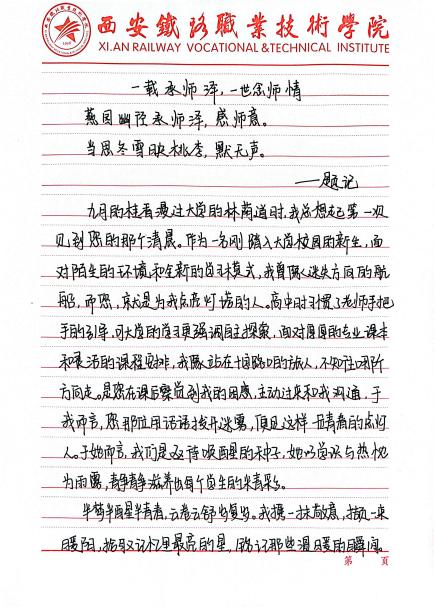 西安鐵路職業技術學院
XI.AN RAILWAY VOCATIONAL &TECHNICAL INSTITUTE
一载承师泽，一世念师情
燕园幽径承师泽，感师意。
当思冬雪映桃李，默无声。
——题记
九月的桂香漫过大学的林荫道时，我总想起第一次
见到您的那个清晨。作为一名刚踏入大学校园的新生，面
对陌生的环境和全新的学习模式，我曾像迷失方向的航
船，而您，就是为我点亮灯塔的人。高中时习惯了老师手把
手的引导，可大学的学习更强调自主探索，面对厚厚的专业课本
和灵活的课程安排，我像站在十字路口的旅人，不知往哪个
方向走。是您在课后察觉到我的困惑，主动过来和我沟通，于
我而言，您那位用话语拨开迷雾，值见这样一君青春的点灯
人。于她而言，我们是这首晚星的种子，她以学识与热忱
为雨露，静静滋养出每个学生的朱青彩。
半梦半醒半青春，云卷云舒岁复岁。我携一抹敬意，拾起一束
暖阳，拾取记忆里最亮的星，铭记那些温暖的瞬间。
第 页